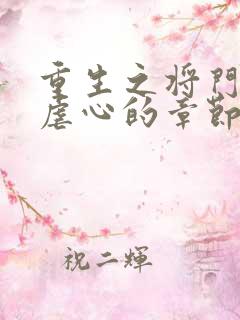 重生之将門
虐心的章節
祝二輝